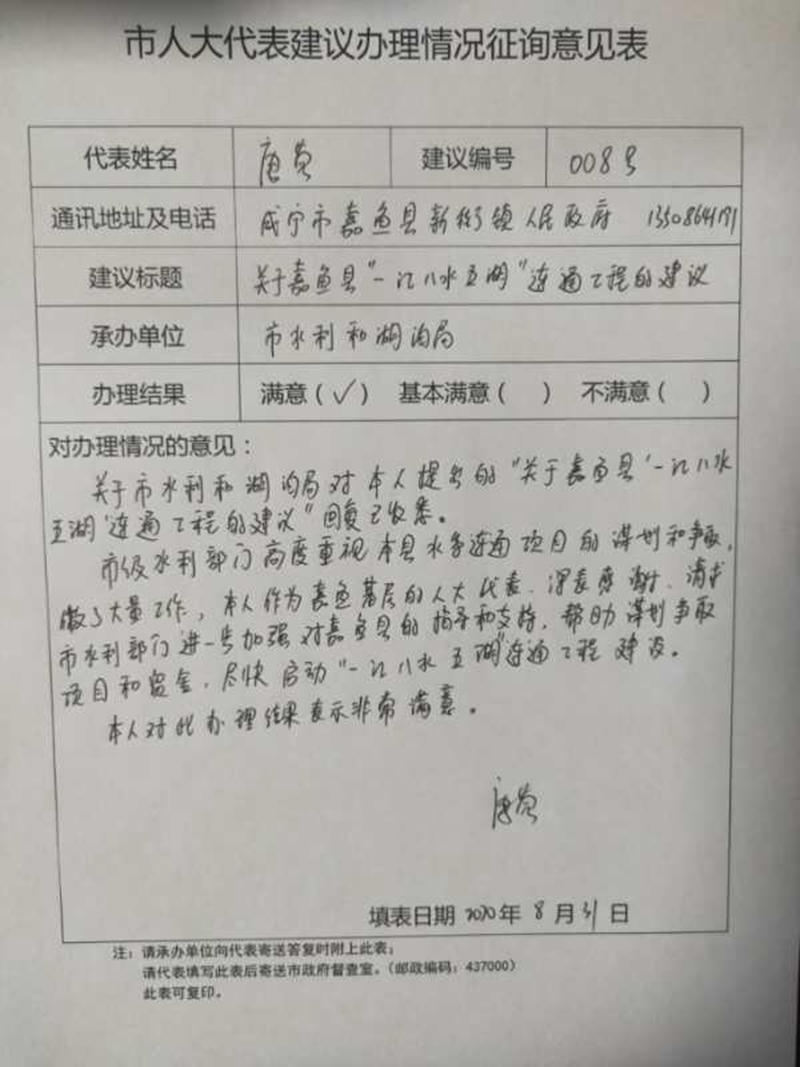 市人大代表建议办理情况征询意见表
代表姓名 唐 建议编号 008号
通讯地址及电话 咸宁市嘉鱼县新街镇人民政府
建议标题 关于嘉鱼县"一江八水五湖"连通工程的建议
承办单位 市水利和湖泊局
办理结果 满意(✓) 基本满意( ) 不满意( )
对办理情况的意见：
关于市水利和湖泊局对本人提出的"关于嘉鱼县'一江八水
五湖'连通工程的建议"回复已收悉。
市级水利部门高度重视本县水系连通项目的谋划和争取,
做了大量工作，本人作为嘉鱼基层的人大代表，深表感谢，请求
市水利部门进一步加强对嘉鱼县的指导和支持，帮助谋划争取
项目和资金，尽快启动"一江八水五湖"连通工程建设。
本人对此办理结果表示非常满意。
唐
填表日期 2020年 8月 31日
注：请承办单位向代表寄送答复时附上此表；
请代表填写此表后寄送市政府督查室。（邮政编码：437000）
此表可复印。